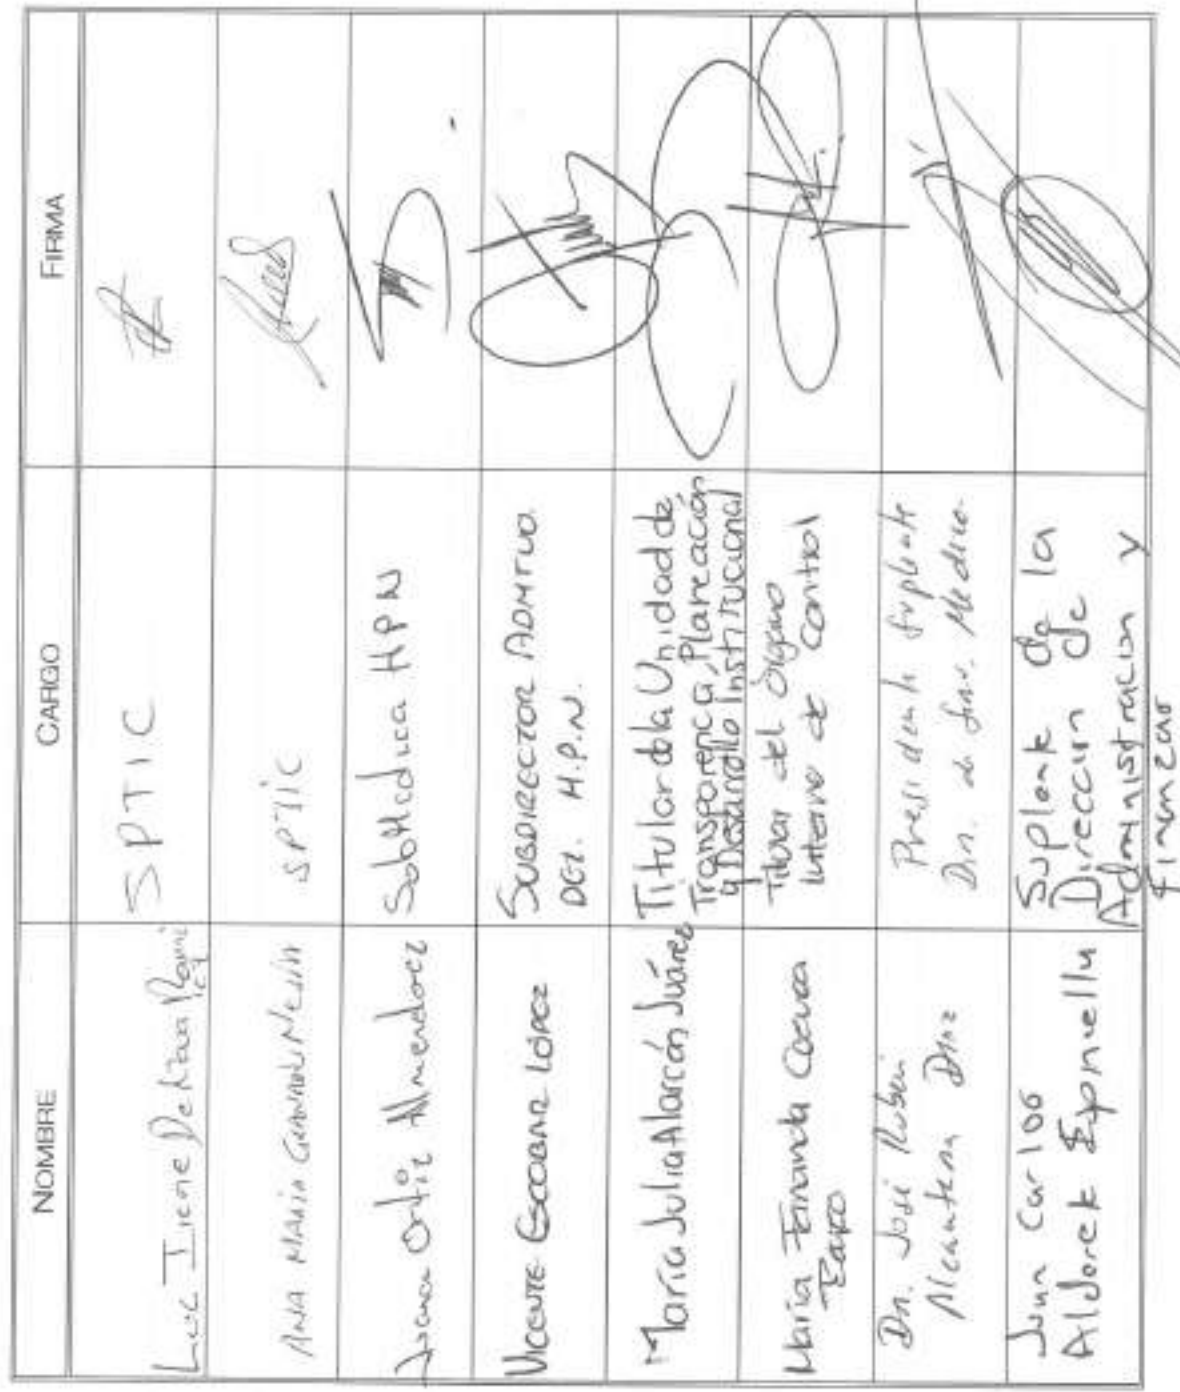 NOMBRE CARGO FIRMA
Irene SPTIC
Ana María SPTIC
Juana Ortiz Almendarez SubMedica HPN
VICENTE ESCOBAR LÓPEZ SUBDIRECTOR ADMTVO.
DEL H.P.N.
María Julia Alarcón Juárez Titular de la Unidad de
Transparencia, Planeación
y Desarrollo Institucional
María Fernanda Titular del Órgano
Interno de Control
Dr. José Rubén Presidente Suplente
Alcantara Díaz Dir. Medico
Juan Carlos Suplente de la
Dirección de
Administración y
Finanzas